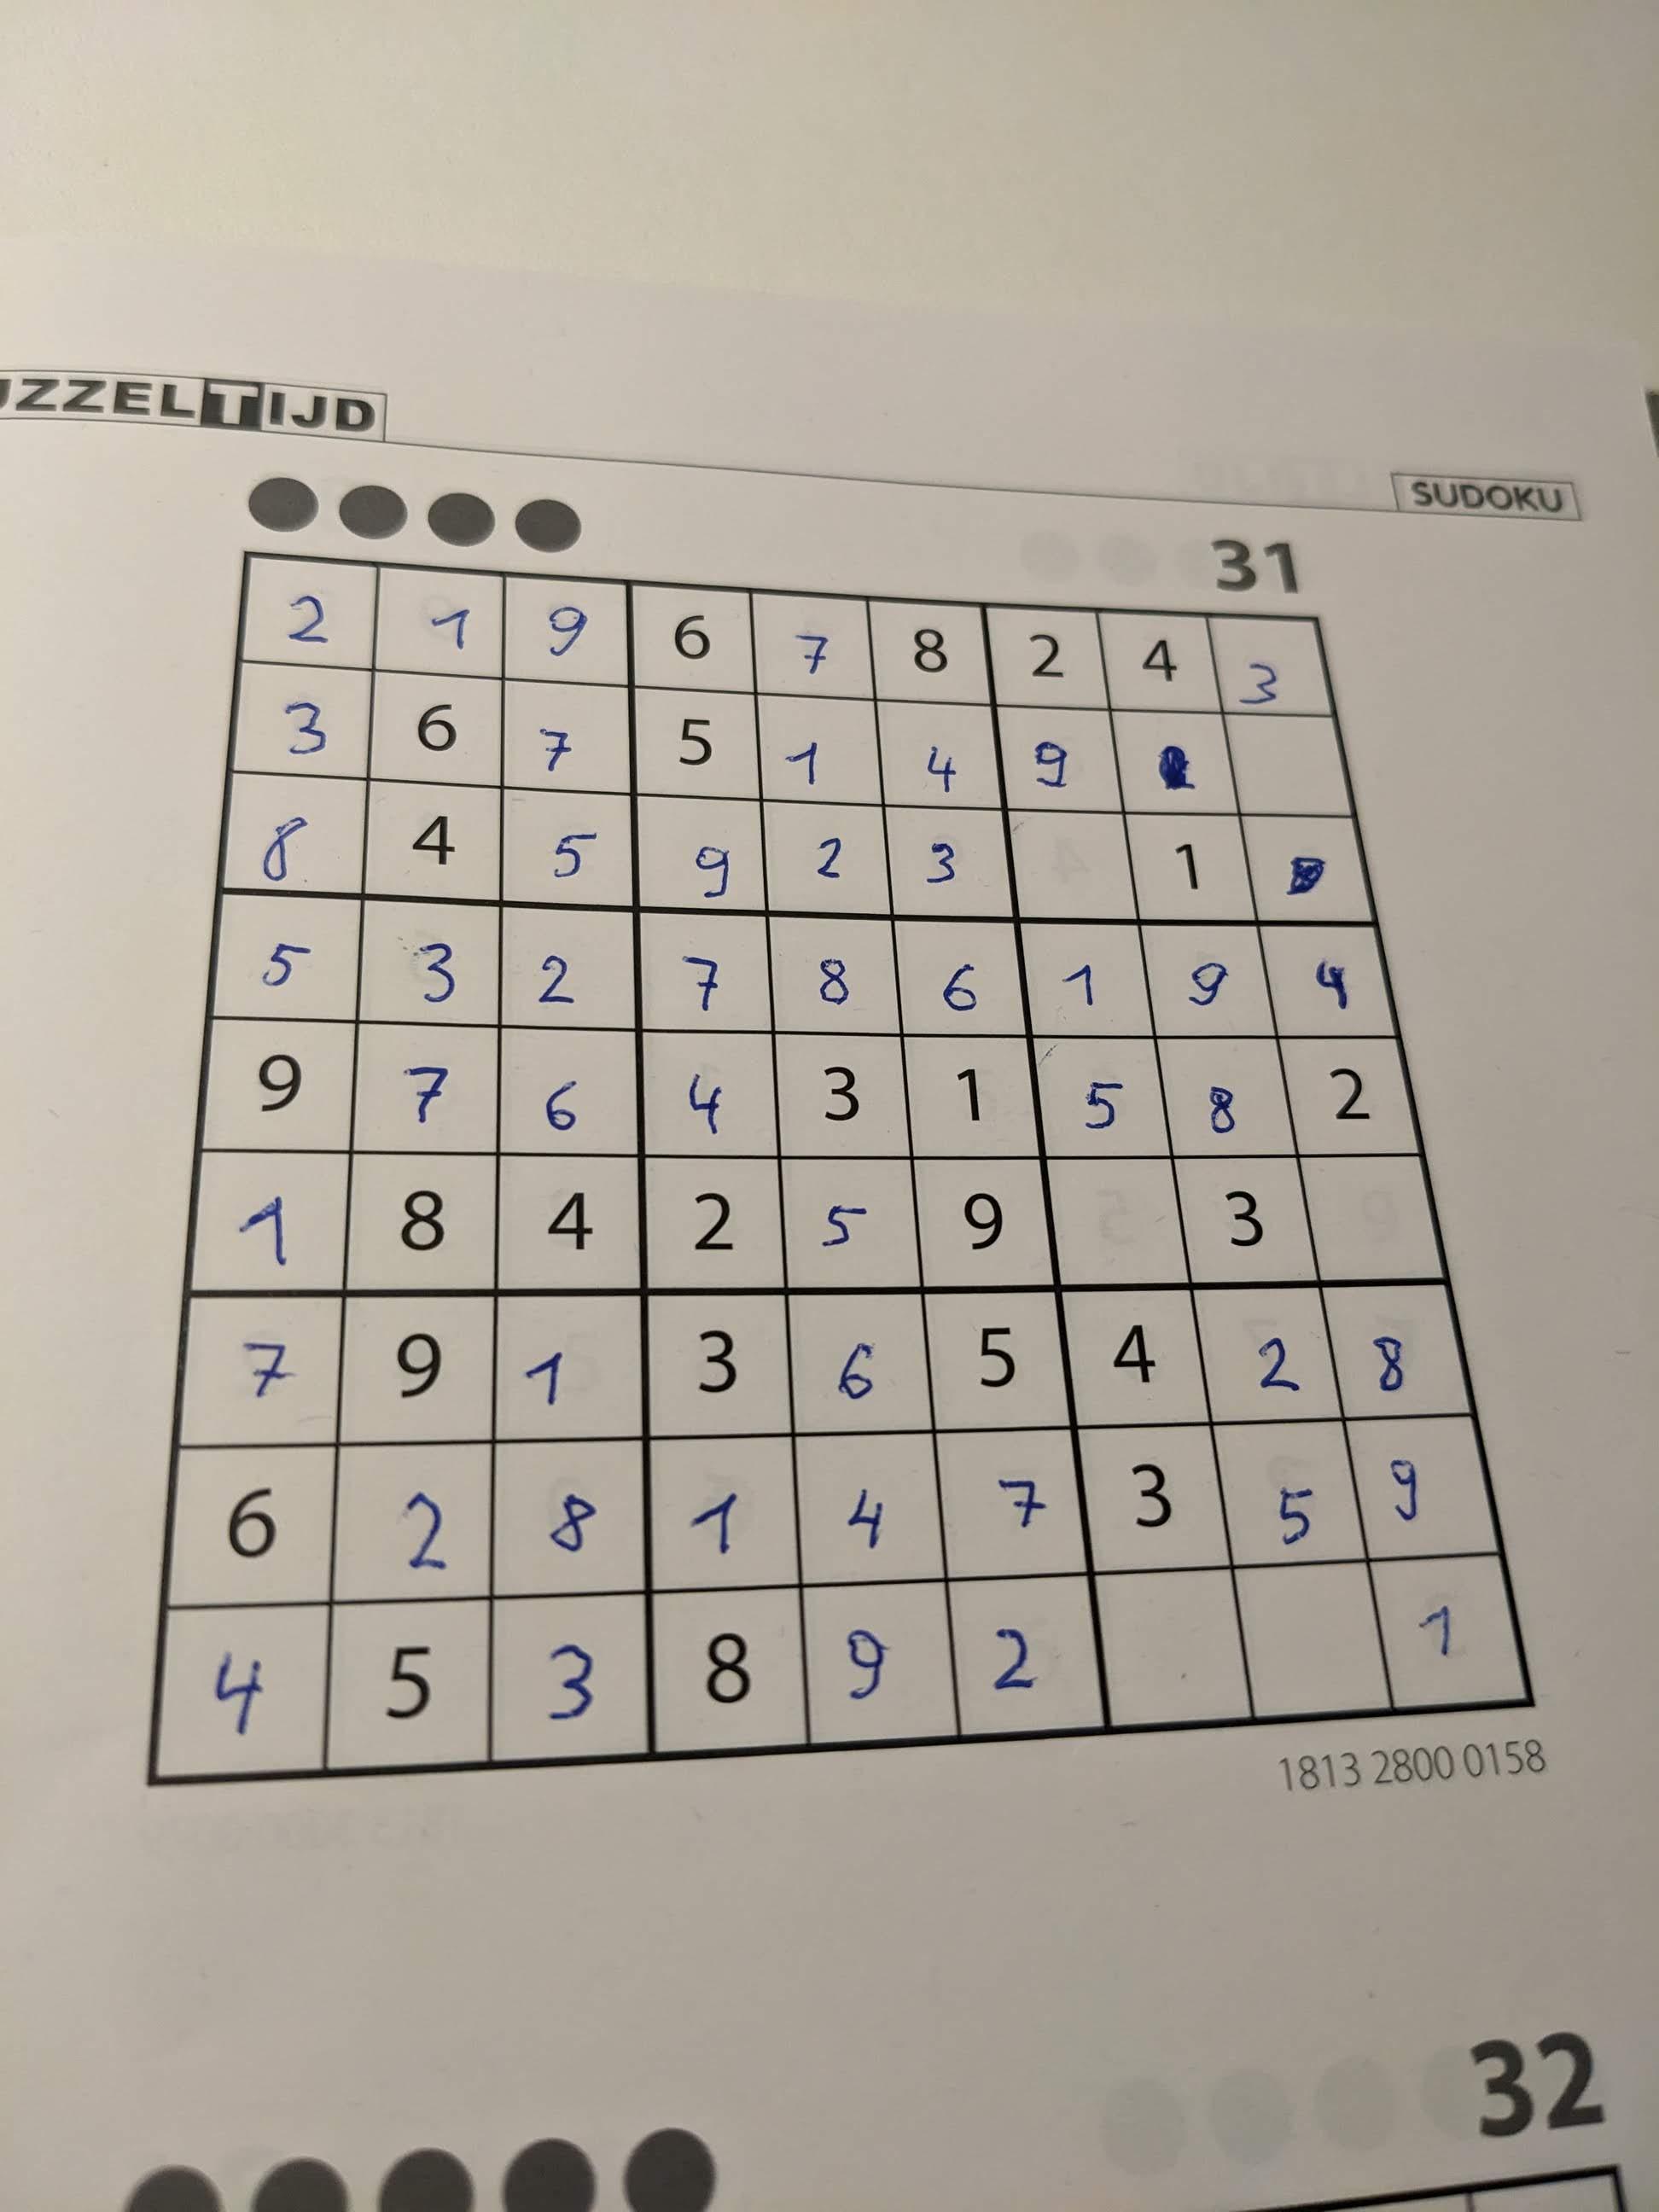 PUZZELTIJD
SUDOKU
31
2 1 9 6 7 8 2 4 3
3 6 7 5 1 4 9
8 4 5 9 2 3 1
5 3 2 7 8 6 1 9 4
9 7 6 4 3 1 5 8 2
1 8 4 2 5 9 3
7 9 1 3 6 5 4 2 8
6 2 8 1 4 7 3 5 9
4 5 3 8 9 2 1
1813 2800 0158
32